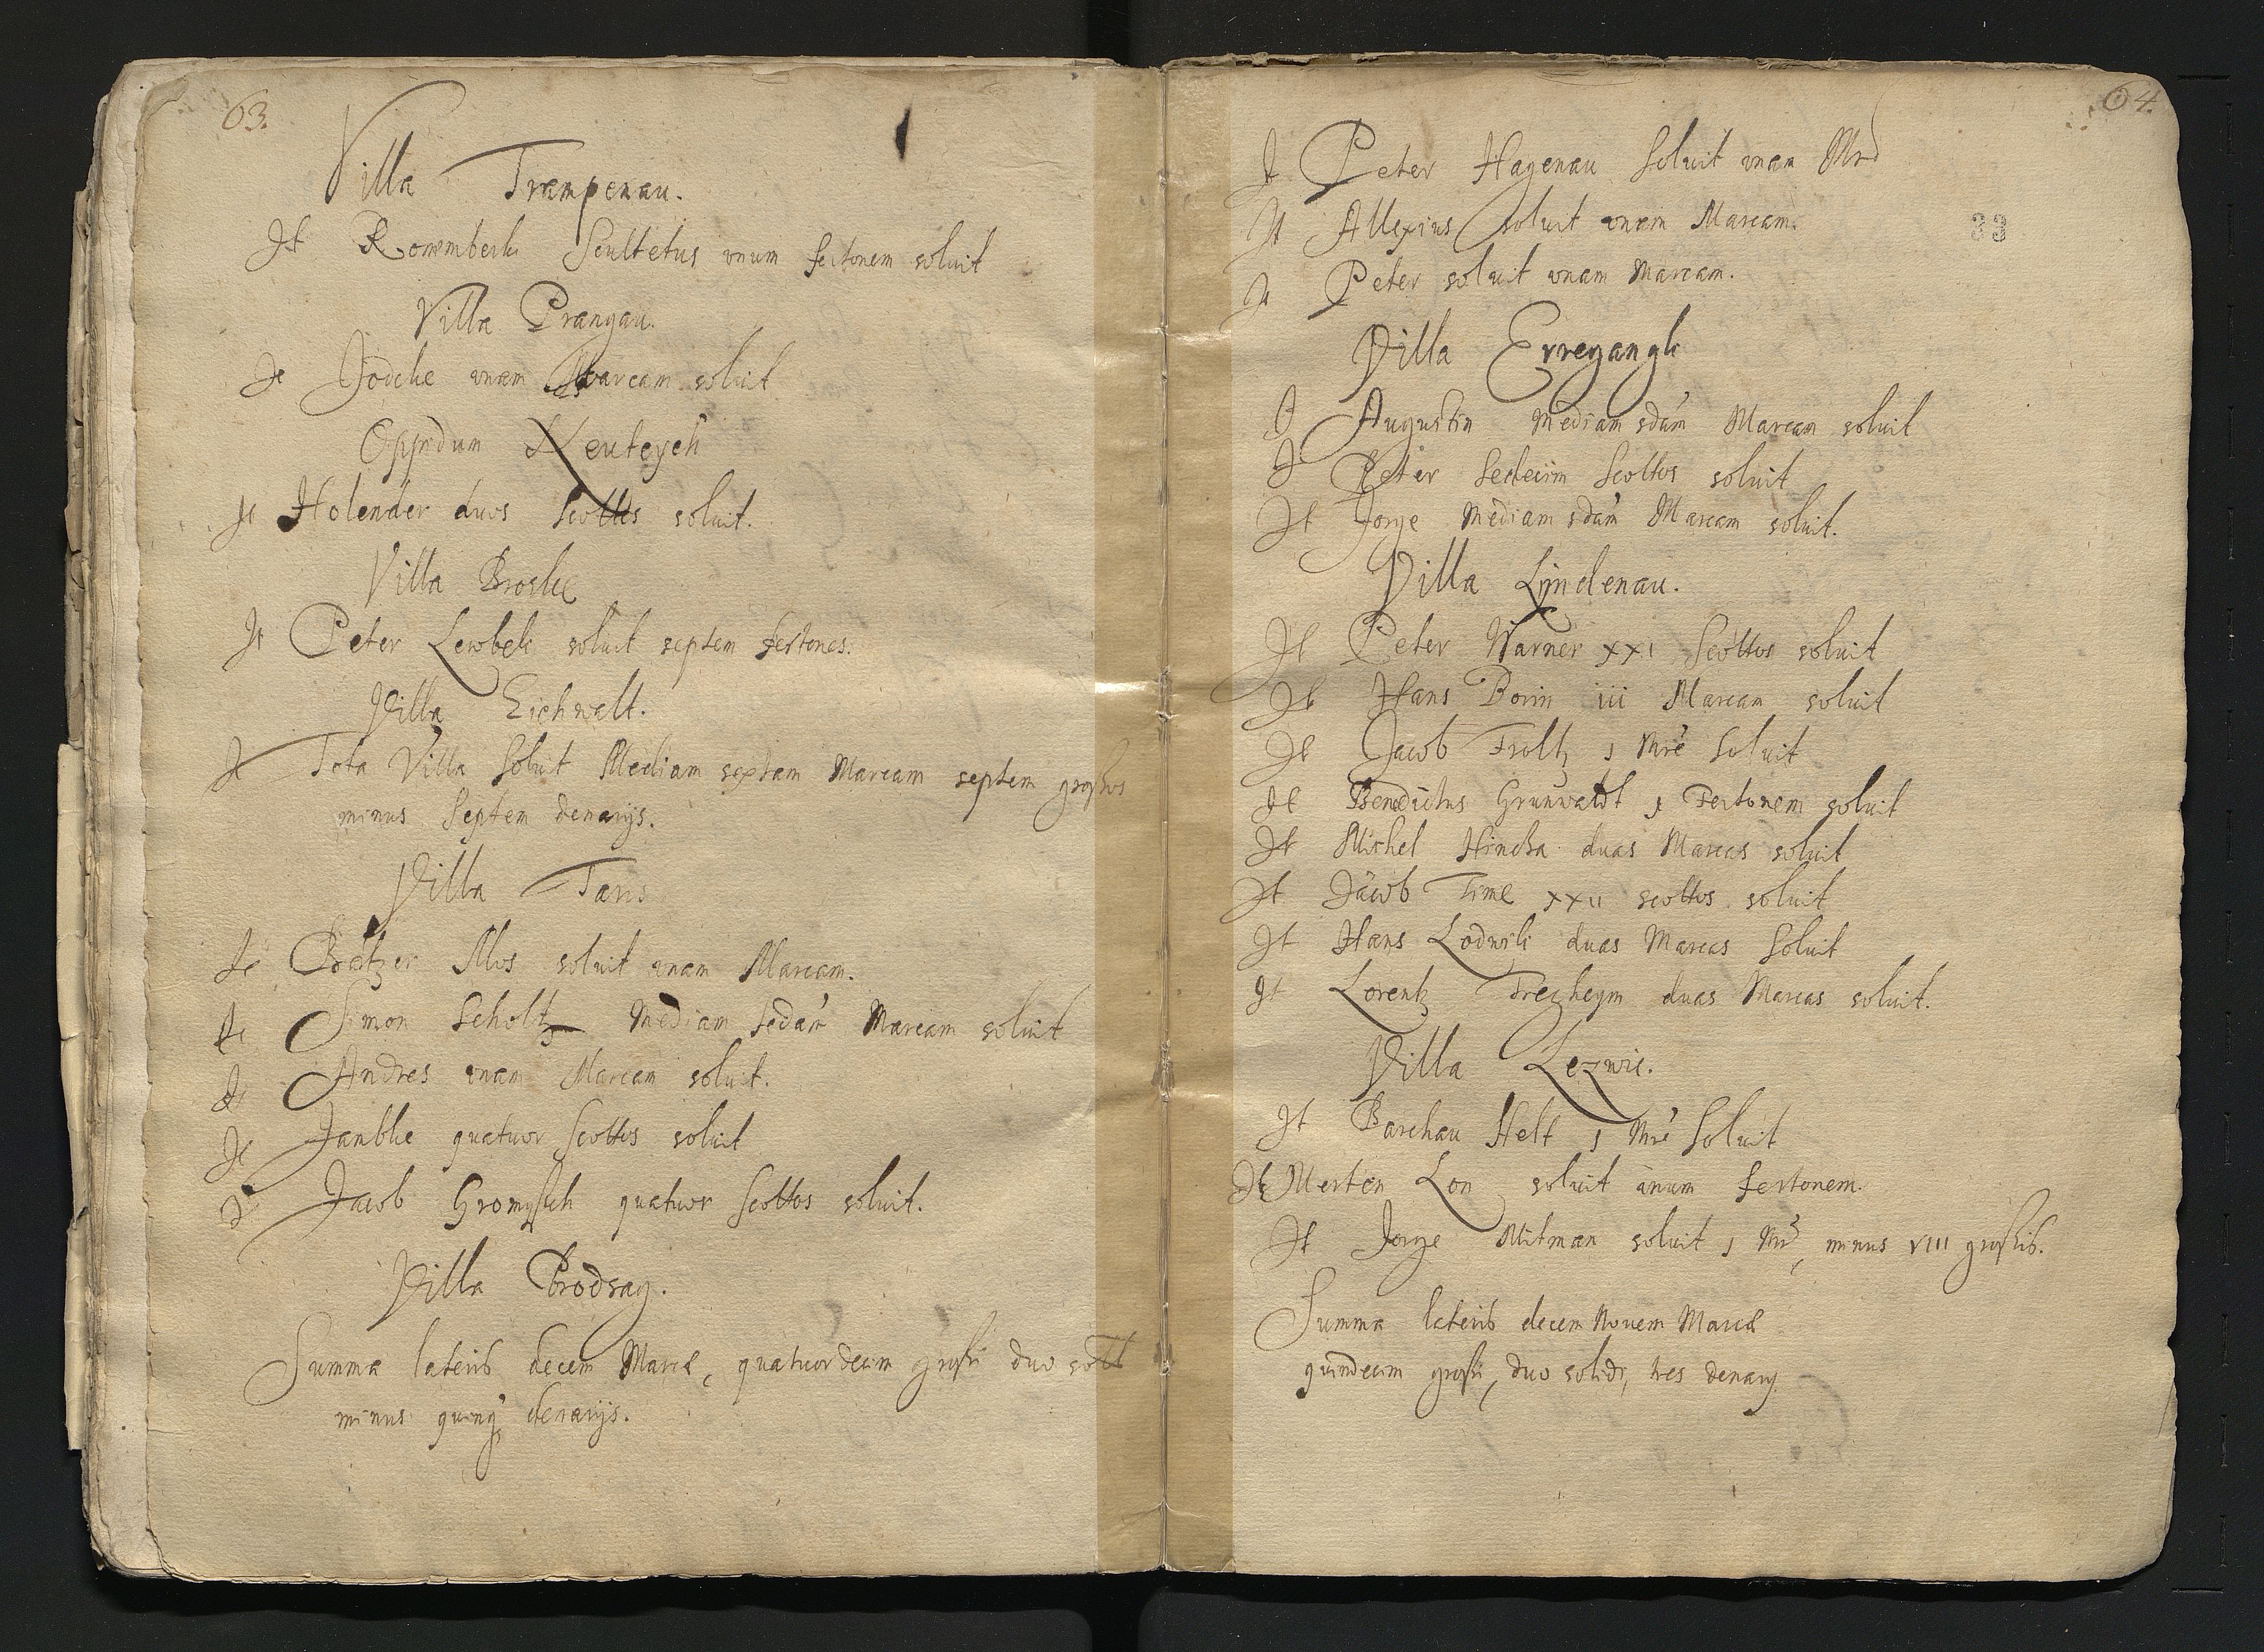 63.
Villa Trampenau.
It Rowmberk Scultetus vnum fertonem soluit
Villa Prangau.
It Jodche vnam Marcam soluit
Oppidum Neuteych
It Holender duos Scottos soluit.
Villa Broske
It Peter Lewbek soluit septem fertones.
Villa Eichwalt.
It Tota Villa Soluit Mediam sextam Marcam septem grossos
minus Septem denarijs.
Villa Tans
It Bratzer Mos soluit vnam Marcam.
It Simon Scholtz Mediam secdam Marcam soluit
It Andres vnam Marcam soluit.
It Janblie quatuor Scottos soluit
It Jacob Gromysch quatuor Scottos soluit.
Villa Brodsag.
Summa lateris decem Marcæ, quatuordecim grossi duo sott
minus quinq denarijs.
64.
33
It Peter Hagenau Soluit vnam Mrc
It Allexius soluit vnam Marcam.
It Peter soluit vnam Marcam.
Villa Erregangk
It Augustin Mediam sdam Marcam soluit
It Peter Sedecim Scottos soluit
It Jorge Mediam sdam Marcam soluit.
Villa Lindenau.
It Peter Warner xxi Scottos soluit
It Hans Borin iii Marcam soluit
It Jacob Troltz j Mrc Soluit
It Benedictus Grunwaldt j Fertonem soluit
It Michel Hincza duas Marcas soluit
It Jacob Time xxii scottos soluit
It Hans Lodwik duas Marcas Soluit
It Lorentz Trezheym duas Marcas soluit.
Villa Lezwic.
It Barchau Helt j Mrc Soluit
It Merten Lon soluit vnum fertonem.
It Jorge Mitman soluit j Mrc, minus viii grossis.
Summa lateris decem Nouem Marcæ
quindecim grossi, duo solidi, tres denarij